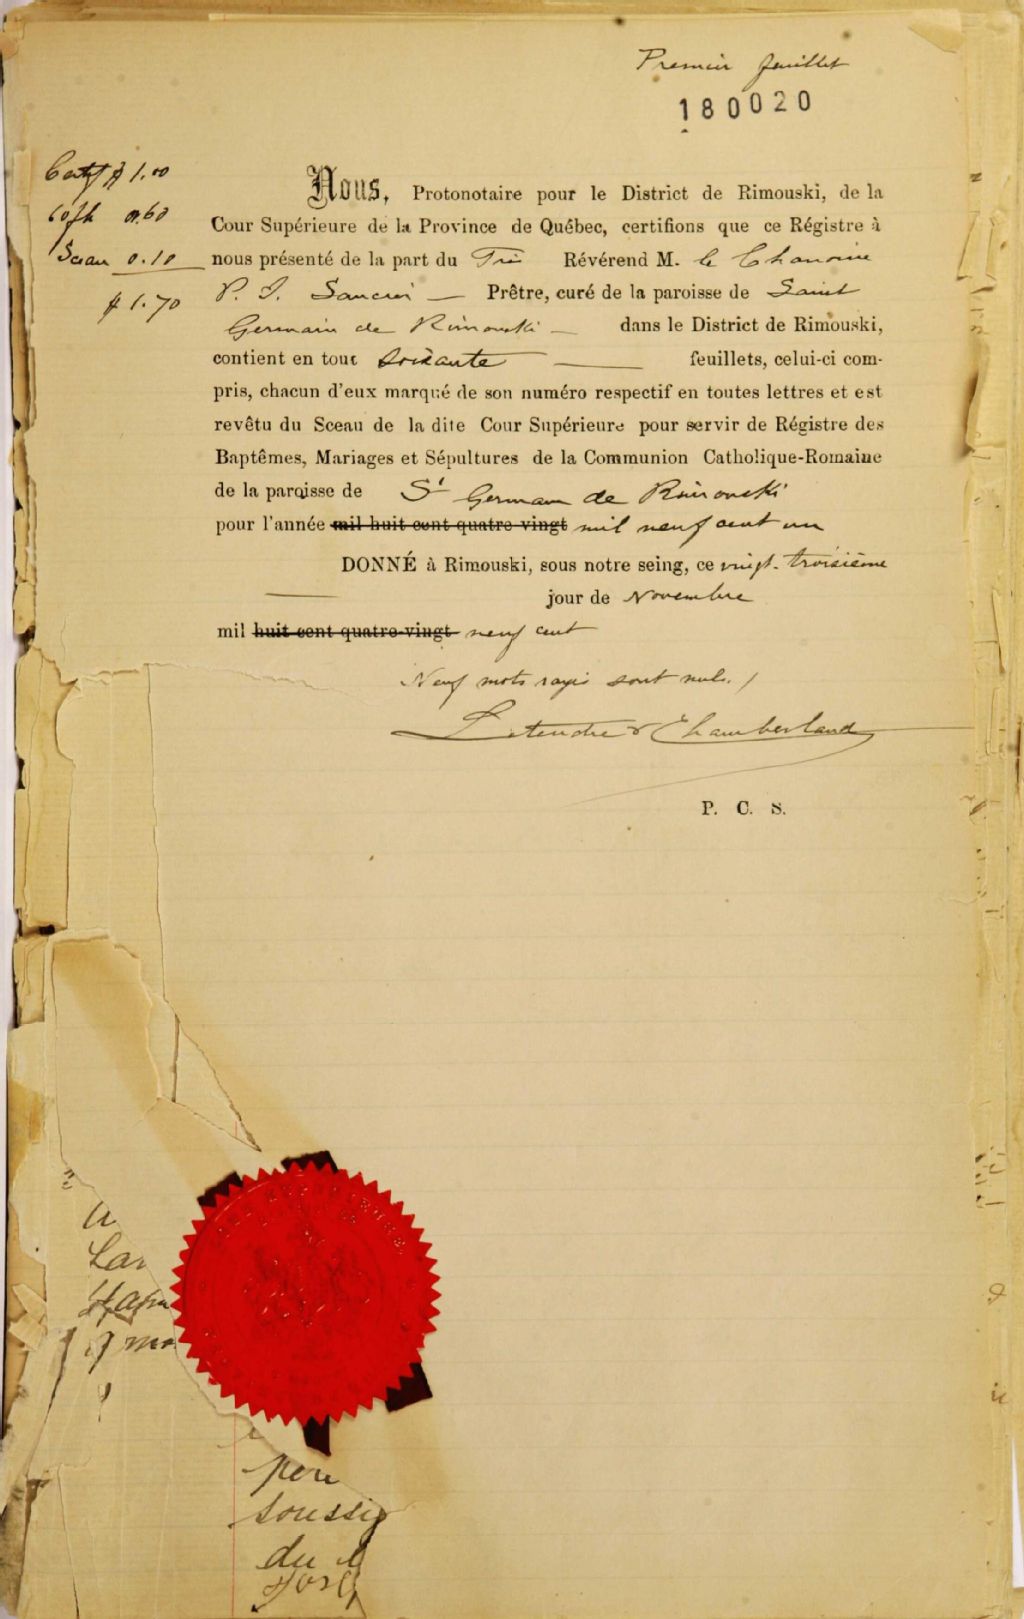 Premier feuillet
180020
Certf $ 1.00
60 fts 0.60
Sceau 0.10
$ 1.70
Nous, Protonotaire pour le District de Rimouski, de la
Cour Supérieure de la Province de Québec, certifions que ce Régistre à
nous présenté de la part du Très Révérend M. le Chanoine
P. J. Saucier — Prêtre, curé de la paroisse de Saint
Germain de Rimouski — dans le District de Rimouski,
contient en tout soixante — feuillets, celui-ci com-
pris, chacun d'eux marqué de son numéro respectif en toutes lettres et est
revêtu du Sceau de la dite Cour Supérieure pour servir de Régistre des
Baptêmes, Mariages et Sépultures de la Communion Catholique-Romaine
de la paroisse de St Germain de Rimouski
pour l'année mil huit cent quatre-vingt mil neuf cent un
DONNÉ à Rimouski, sous notre seing, ce vingt-troisième
— jour de Novembre
mil huit cent quatre-vingt neuf cent
Neuf mots rayés sont nuls.
Letendre & Chamberland
P. C. S.
père
soussig
du